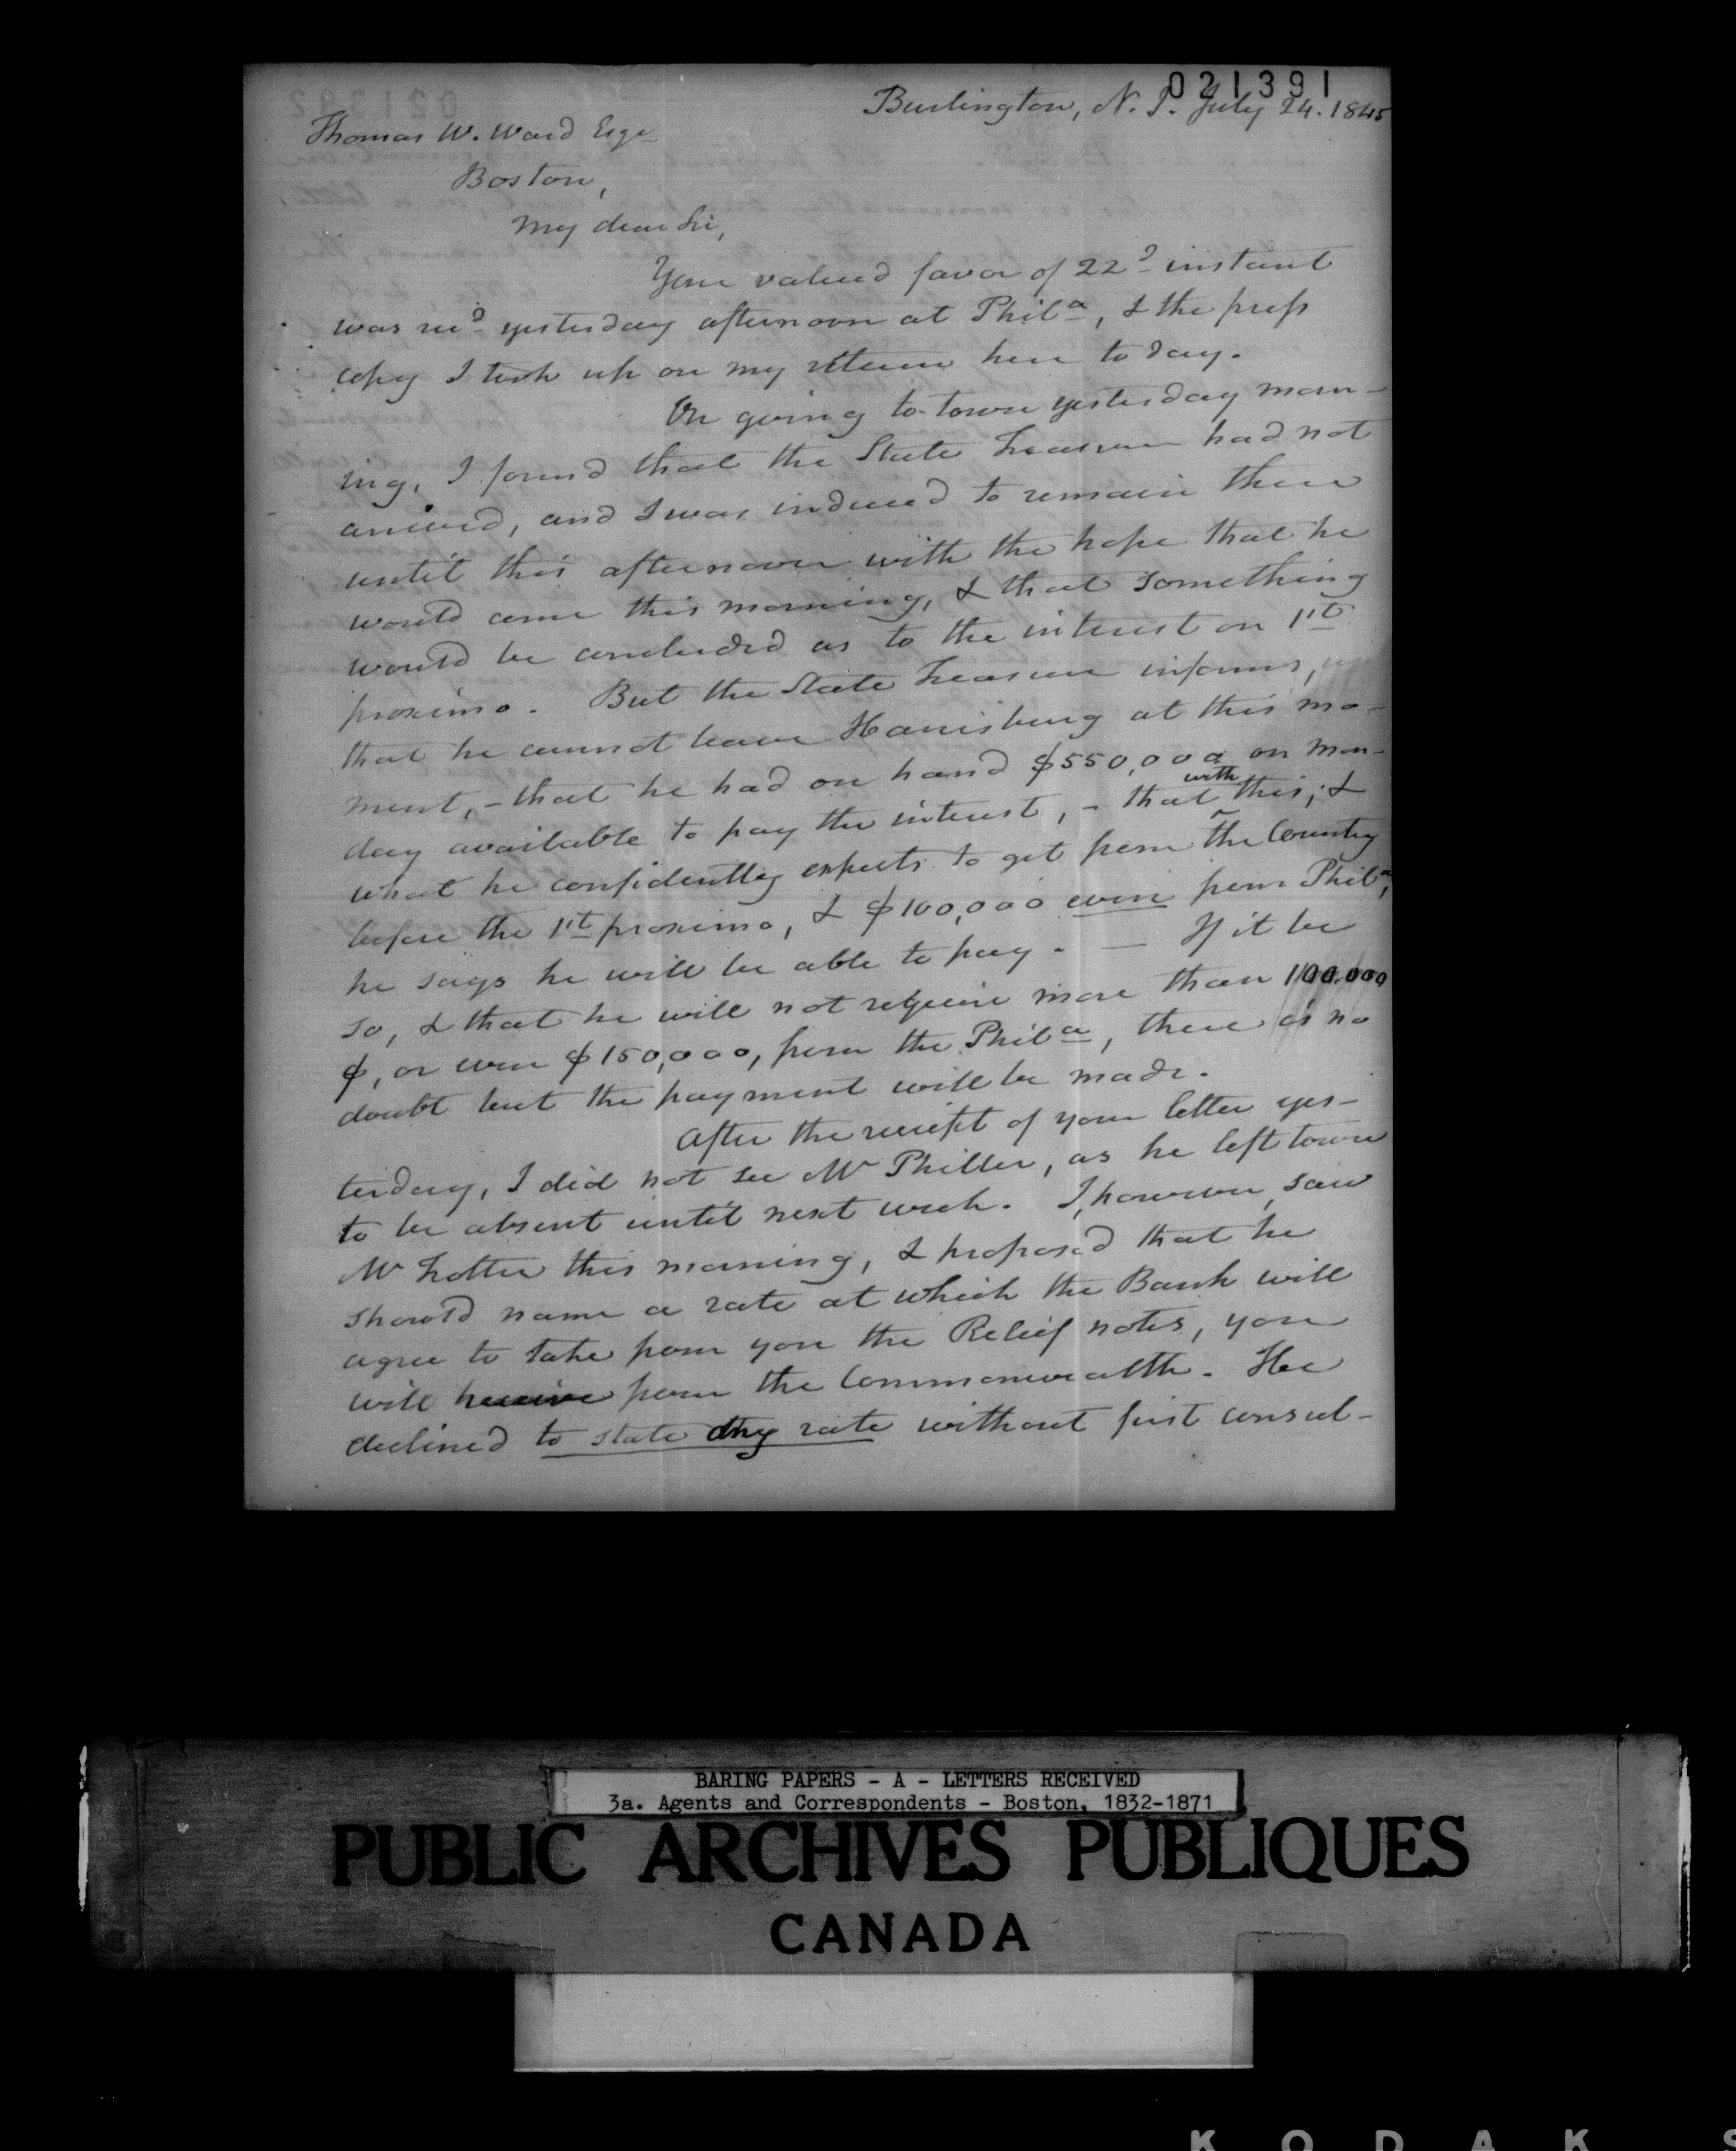 021391
Burlington, N. J. July 24. 1845
Thomas W. Ward Esqe
Boston,
My dear Sir,
Your valued favor of 22d instant
was recd yesterday afternoon at Phila, & the press
copy I took up on my return here to day.
On going to town yesterday morn-
ing, I found that the State Treasurer had not
arrived, and I was induced to remain there
until this afternoon with the hope that he
would come this morning, & that something
would be concluded as to the interest on 1st
proximo. But the State Treasurer informs, us
that he cannot leave Harrisburg at this mo-
ment, - that he had on hand $550,000 on Mon-
day available to pay the interest, - that with this, &
what he confidently expects to get from the Country
before the 1st proximo, & $100,000 even from Phila,
he says he will be able to pay. — If it be
so, & that he will not require more than 100.000
$, or even $150,000, from the Phila, there is no
doubt but the payment will be made.
After the receipt of your letter yes-
terday, I did not see Mr Philler, as he left town
to be absent until next week. I, however, saw
Mr Trotter this morning, & proposed that he
should name a rate at which the Bank will
agree to take from you the Relief notes, you
will receive from the Commonwealth. He
declined to state any rate without first consul-
BARING PAPERS - A - LETTERS RECEIVED
3a. Agents and Correspondents - Boston, 1832-1871
PUBLIC ARCHIVES PUBLIQUES
CANADA
KODAK